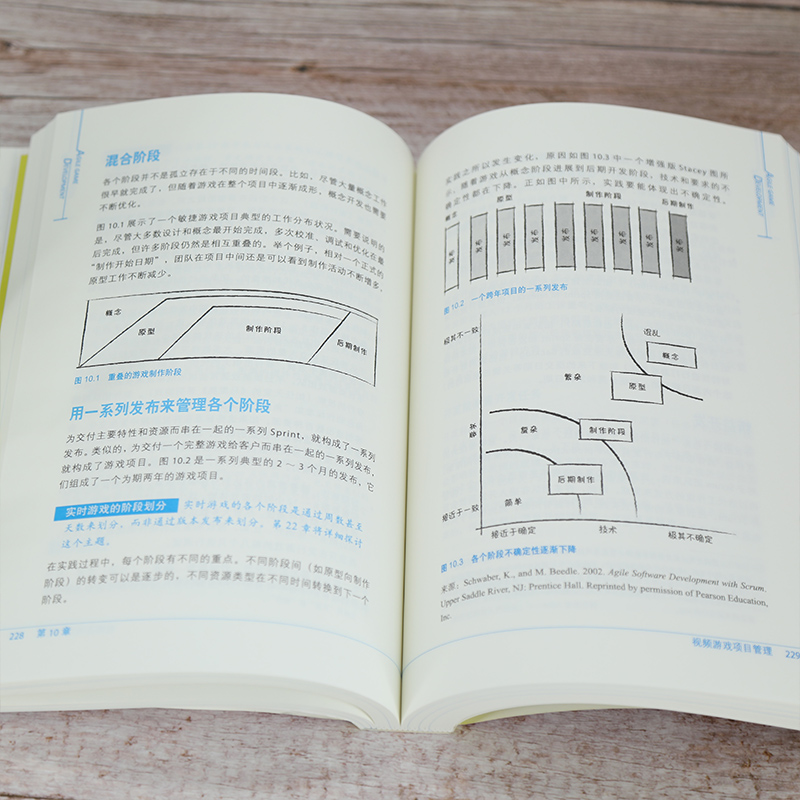 AGILE GAME
DEVELOPMENT
混合阶段
各个阶段并不是孤立存在于不同的时间段，比如，尽管大量概念工作
很早就完成了，但随着游戏在整个项目中逐渐成形，概念开发也需要
不断优化。
图 10.1 展示了一个敏捷游戏项目典型的工作分布状况。需要说明的
是，尽管大多数设计和概念最开始完成，多次校准、调试和优化在最
后完成，但许多阶段仍然是相互重叠的。举个例子，相对一个正式的
“制作开始日期”，团队在项目中间还是可以看到制作活动不断增多，
原型工作不断减少。
概念
原型
制作阶段
后期制作
图 10.1 重叠的游戏制作阶段
用一系列发布来管理各个阶段
为交付主要特性和资源而串在一起的一系列 Sprint，就构成了一系列
发布。类似的，为交付一个完整游戏给客户而串在一起的一系列发布，
就构成了游戏项目。图 10.2 是一系列典型的 2 ~ 3 个月的发布，它
们组成了一个为期两年的游戏项目。
实时游戏的阶段划分 实时游戏的各个阶段是通过周数甚至
天数来划分，而非通过版本发布来划分。第 22 章将详细探讨
这个主题。
在实践过程中，每个阶段有不同的重点。不同阶段间（如原型向制作
阶段）的转变可以是逐步的，不同资源类型在不同时间转换到下一个
阶段。
228 第 10 章
AGILE GAME
DEVELOPMENT
实践之所以发生变化，原因如图 10.3 中一个增强版 Stacey 图所
示，随着游戏从概念阶段进展到后期开发阶段，技术和要求的不
确定性都在下降。正如图中所示，实践要能体现出不确定性。
概念 原型 制作阶段 后期制作
发布 发布 发布 发布 发布 发布 发布 发布 发布
图 10.2 一个跨年项目的一系列发布
极其不一致
混乱
概念
繁杂
原型
要求
复杂
制作阶段
后期制作
简单
接近于一致
接近于确定 技术 极其不确定
图 10.3 各个阶段不确定性逐渐下降
来源：Schwaber, K., and M. Beedle. 2002. Agile Software Development with Scrum.
Upper Saddle River, NJ: Prentice Hall. Reprinted by permission of Pearson Education,
Inc.
视频游戏项目管理 229